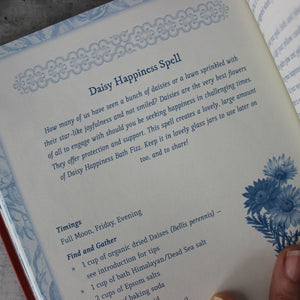 Daisy Happiness Spell
How many of us have seen a bunch of daisies or a lawn sprinkled with
their star-like joyfulness and not smiled? Daisies are the very best flowers
of all to engage with should you be seeking happiness in challenging times.
They offer protection and support. This spell creates a lovely, large amount
of Daisy Happiness Bath Fizz. Keep it in lovely glass jars to use later on
too, and to share!
Timings
Full Moon, Friday, Evening
Find and Gather
» 1 cup of organic dried Daisies (Bellis perennis) –
see introduction for tips
» 1 cup of bath Himalayan/Dead Sea salt
» 2 cups of Epsom salts
of baking soda